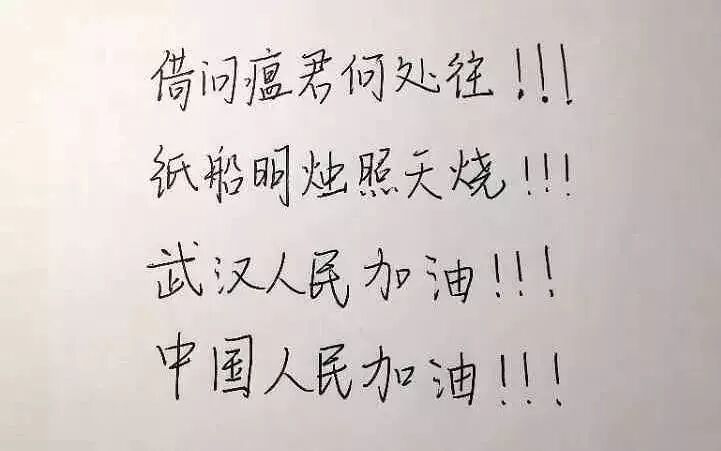 借问瘟君何处往!!!
纸船明烛照天烧!!!
武汉人民加油!!!
中国人民加油!!!